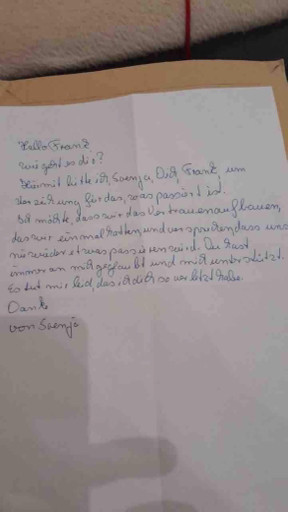 Hallo Frank
wie geht es dir?
Hiermit bitte ich, Svenja, Dich, Frank, um
Verzeihung für das, was passiert ist.
Ich möchte, dass wir das Vertrauen aufbauen,
das wir einmal hatten, und versprechen, dass uns
nie wieder etwas passieren wird. Du hast
immer an mich geglaubt und mich unterstützt.
Es tut mir leid, das ich dich so verletzt habe.
Danke
von Svenja